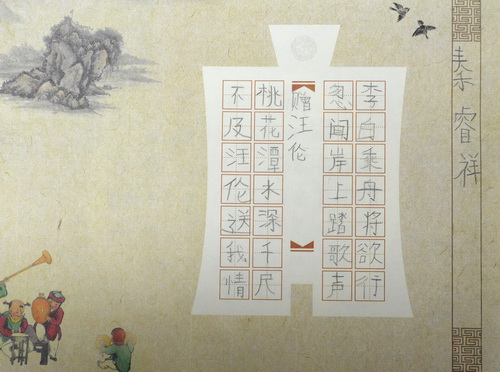 李白乘舟将欲行
忽闻岸上踏歌声
赠汪伦
桃花潭水深千尺
不及汪伦送我情
秦睿祥